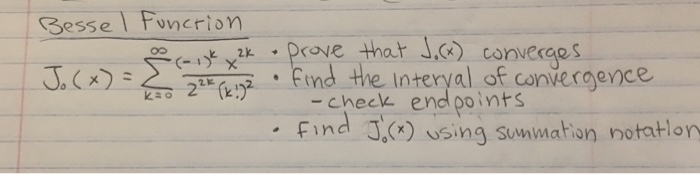 Bessel Function
J₀(x) = ∞ Σ k=0 (-1)ᵏ x²ᵏ / 2²ᵏ (k!)²
• prove that J₀(x) converges
• find the interval of convergence
- check endpoints
• Find J₀'(x) using summation notation